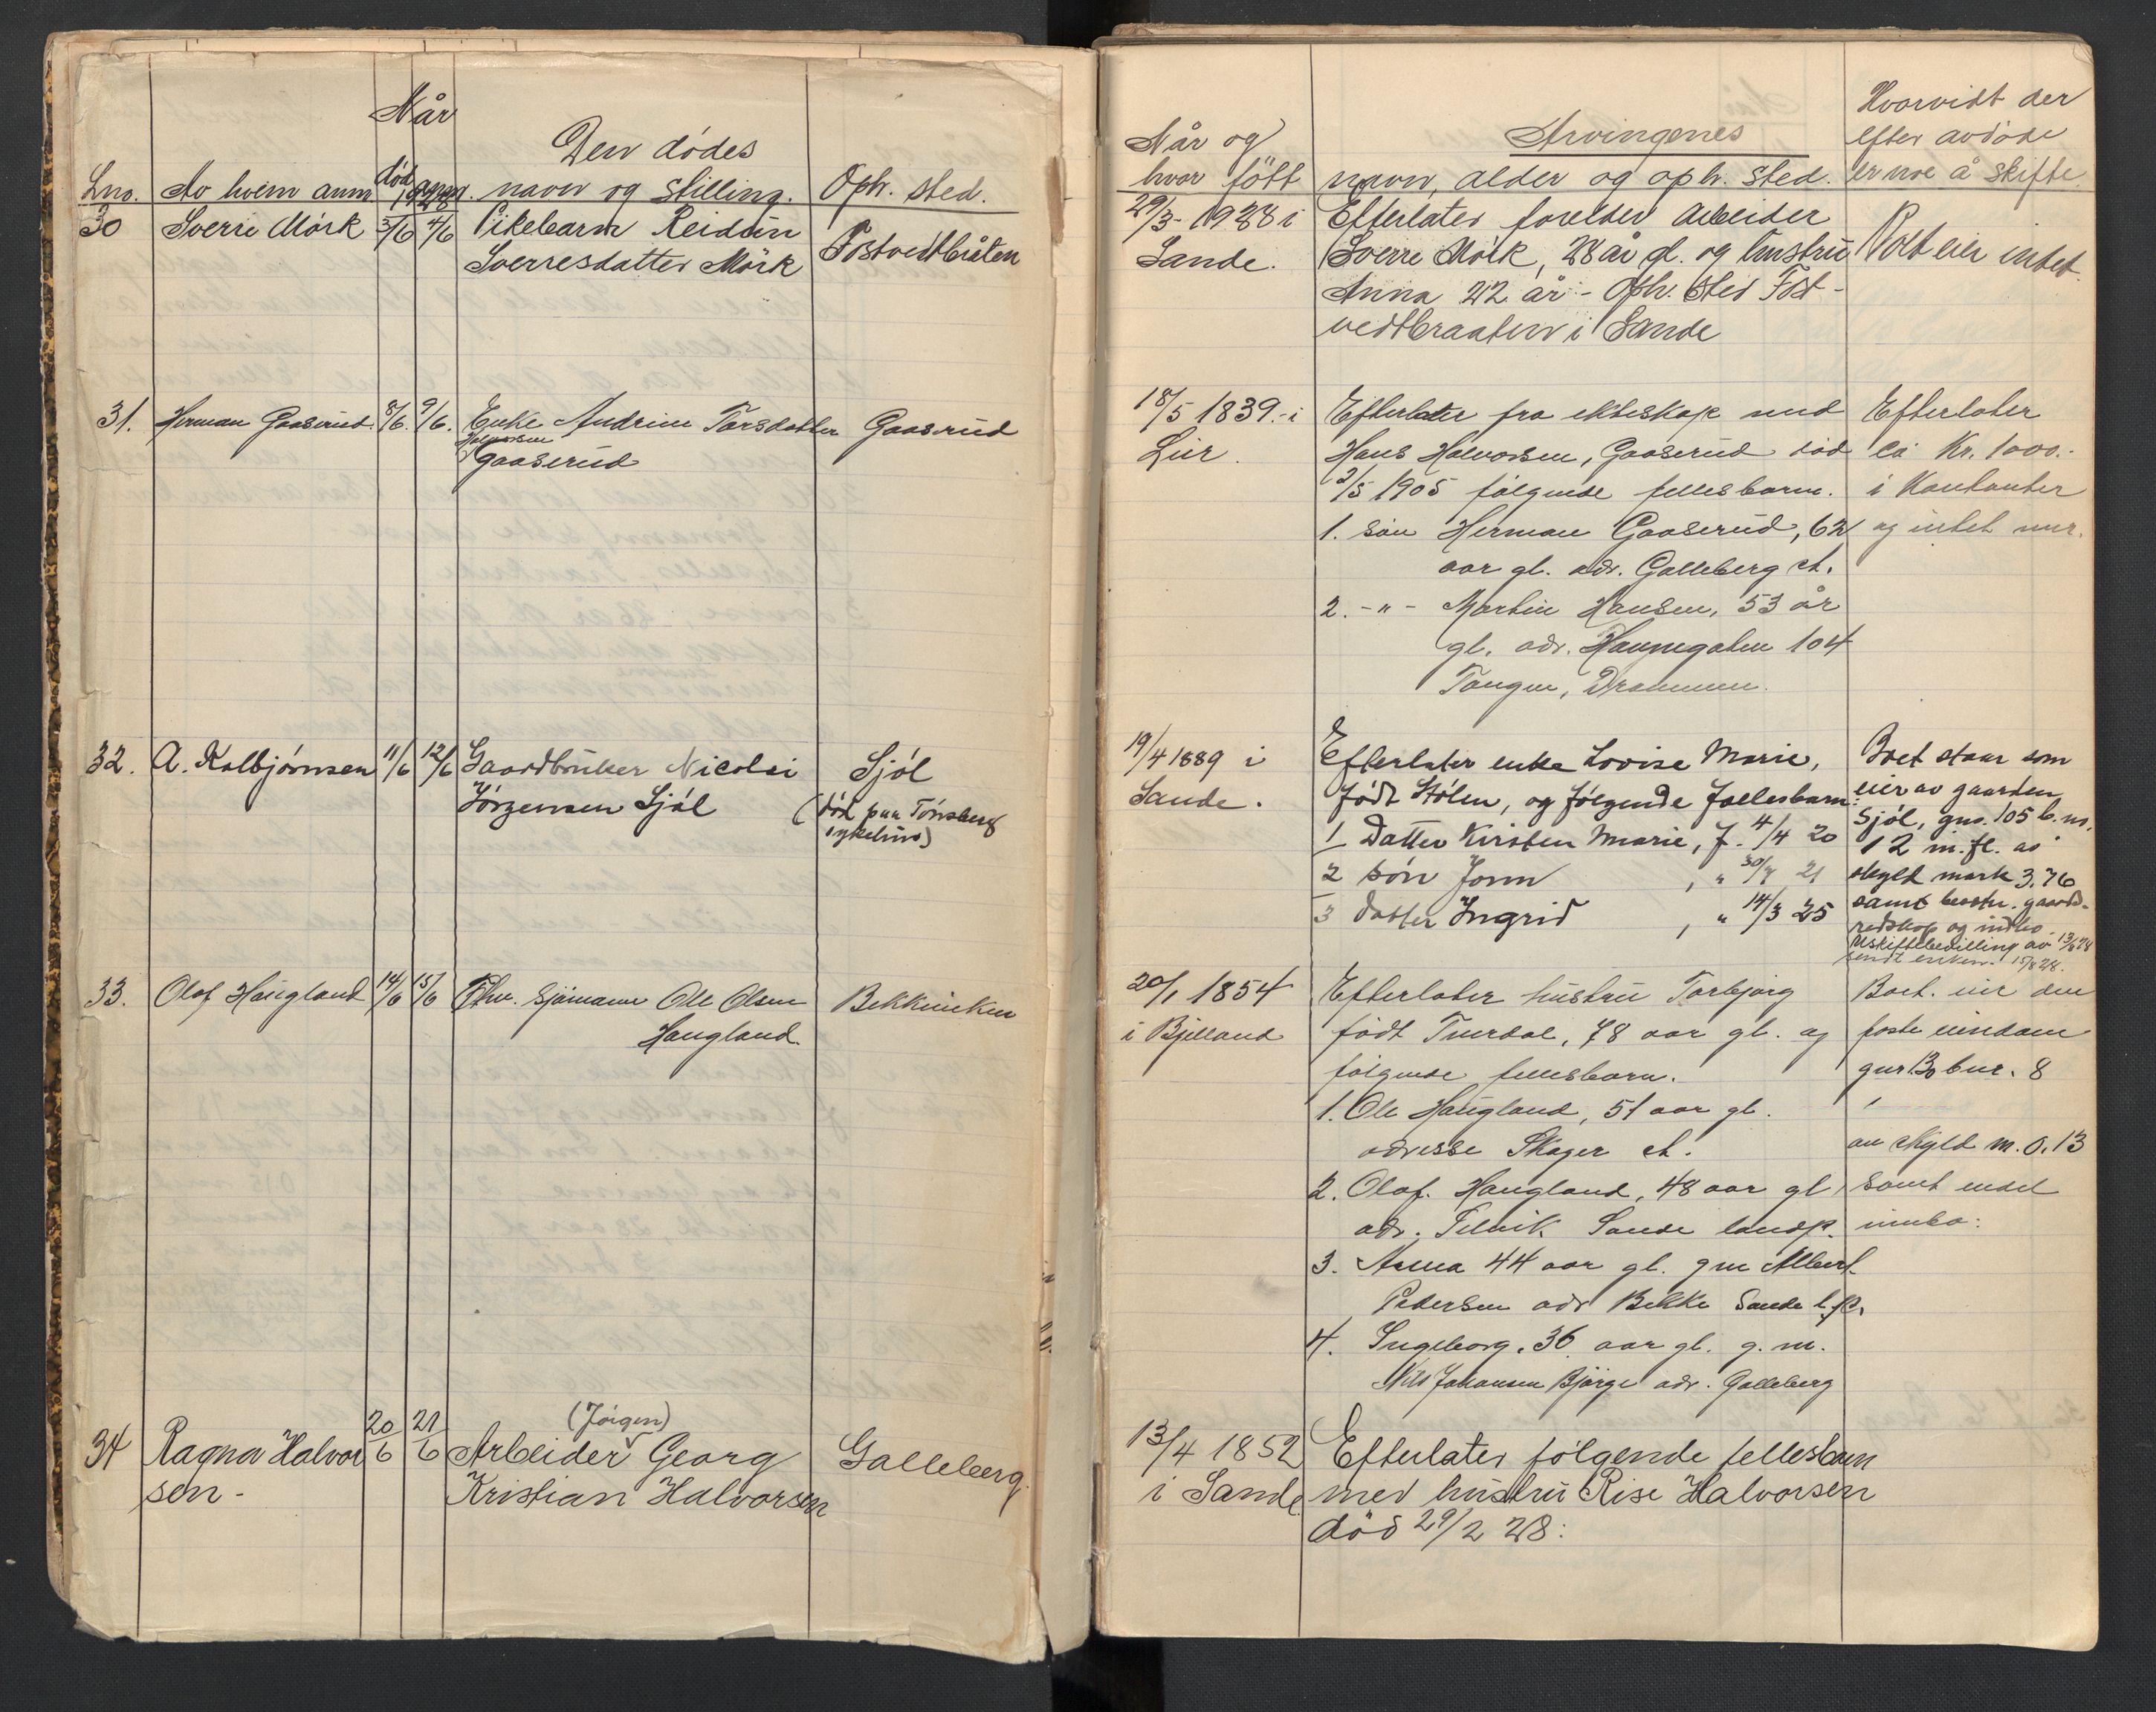 Når
Den dødes
Lno. Av hvem anm. død anm. navn og stilling. Oph. sted.
1928
30 Sverre Mörk 3/6 4/6 Pikebarn Reidun Fostvedtbråten
Sverresdatter Mörk
31. Herman Gaaserud. 8/6. 9/6. Enke Andrine Torsdatter Gaaserud
Halvorsen
Gaaserud
32. A. Kolbjørnsen 11/6 12/6 Gaardbruker Nicolai Sjøl
Jørgensen Sjøl (død paa Tønsberg
sykehus)
33. Olaf Haugland 14/6 15/6 Fhv. Sjömann Ole Olsen Bekkeviken
Haugland.
(Jörgen)
34 Ragna Halvor 20/6 21/6 Arbeider Georg Galleberg.
sen - Kristian Halvorsen
Hvorvidt der
Når og Arvingenes efter avdøde
hvor født navn, alder og oph. sted. er noe å skifte.
29/3 - 1928 i Efterlater foreldre Arbeider
Sande. Sverre Mörk, 28 år gl. og hustru Boet eier intet.
Anna 22 år - Oph. sted Fost-
vedtbraaten i Sande
18/5 1839. i Efterlater fra ekteskap med Efterlater
Lier. Hans Halvorsen, Gaaserud död ca Kr. 1000.-
2/5 1905 følgende fellesbarn. i Kontanter
1. sön Herman Gaaserud, 62 og intet mer.
aar gl. adr. Galleberg st.
2. -"- Martin Hansen, 53 år
gl. adr. Havnegaten 104
Tangen, Drammen.
19/4 1889 i Efterlater enke Lovise Marie, Boet staar som
Sande. født Stølen, og følgende fællesbarn: eier av gaarden
1 Datter Kirsten Marie, f. 4/4 20 Sjøl, gno. 105 b.no.
2 søn Jonn , " 30/7 21 12 m.fl. av
3 datter Ingrid , " 14/3 25 skyld mark 3,76
samt besetn. gaards-
redskap og indbo.
Uskiftebevilling av 13/8 28
sendt enken. 15/8 28.
20/1 1854 Efterlater hustru Torbjørg Boet. eier den
i Bjelland født Tverdal, 78 aar gl. og faste eiendom
følgende fellesbarn. gnr 130 bnr. 8
1. Ole Haugland, 51 aar gl.
adresse Skoger st. av skyld m. 0,13
2. Olaf. Haugland, 48 aar gl. samt endel
adr. Selvik Sande landp. innbo.
3. Anna 44 aar gl. g m Albert
Pedersen adr Bekke Sande l.p.
4. Ingeborg. 36 aar gl. g. m.
Nils Johansen Bjørge adr. Galleberg
13/4 1852 Efterlater følgende fellesbarn
i Sande med hustru Rise Halvorsen
død 29/2 28: